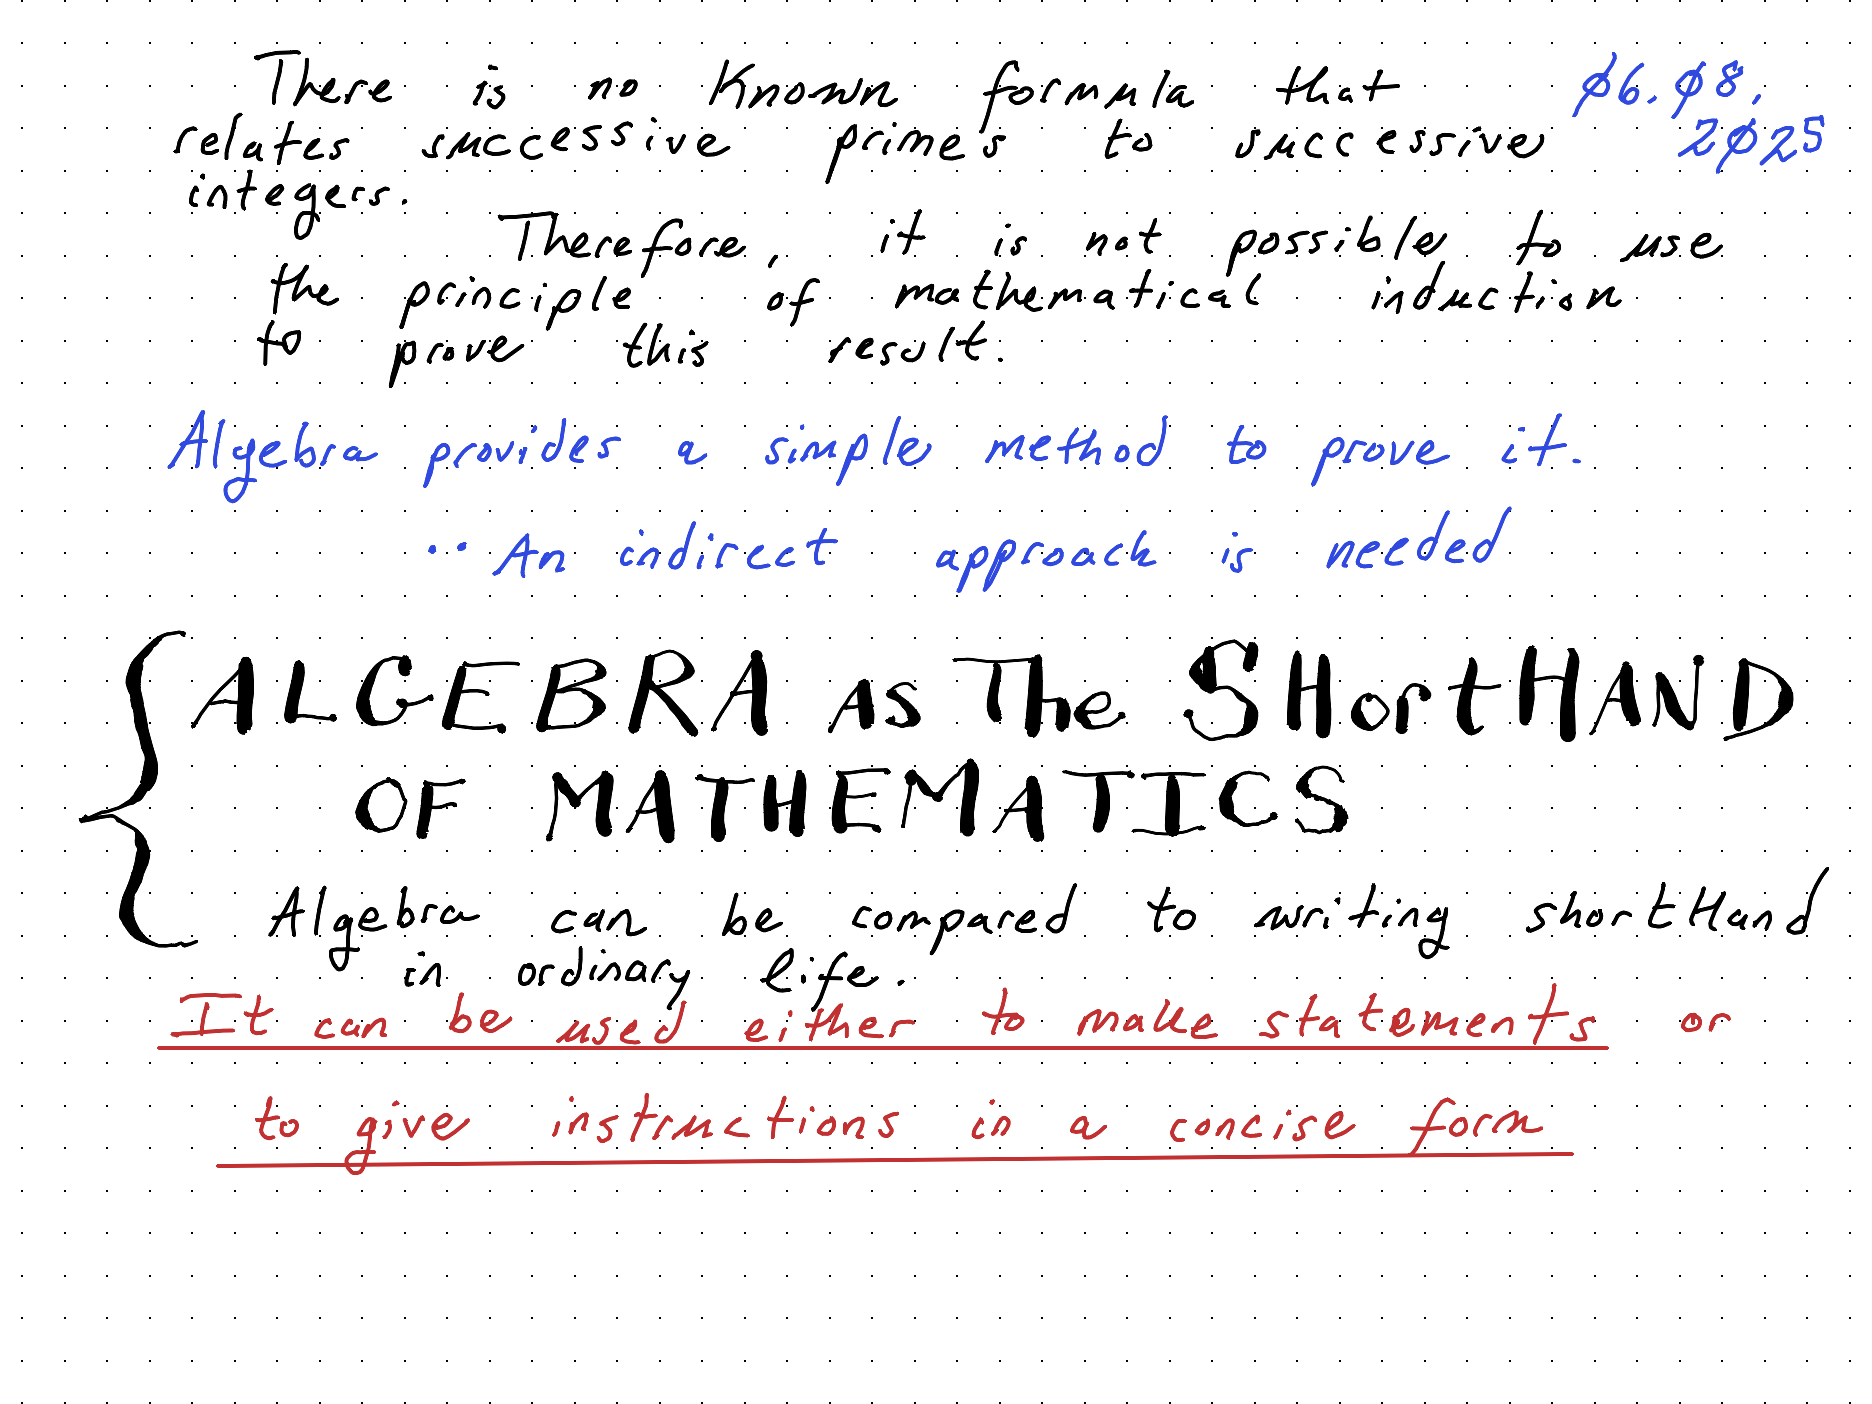 There is no known formula that
ø6.ø8.
relates successive primes to successive
2ø25
integers.
Therefore, it is not possible to use
the principle of mathematical induction
to prove this result.
Algebra provides a simple method to prove it.
·· An indirect approach is needed
ALGEBRA AS The SHortHAND
OF MATHEMATICS
Algebra can be compared to writing shortHand
in ordinary life.
It can be used either to make statements or
to give instructions in a concise form